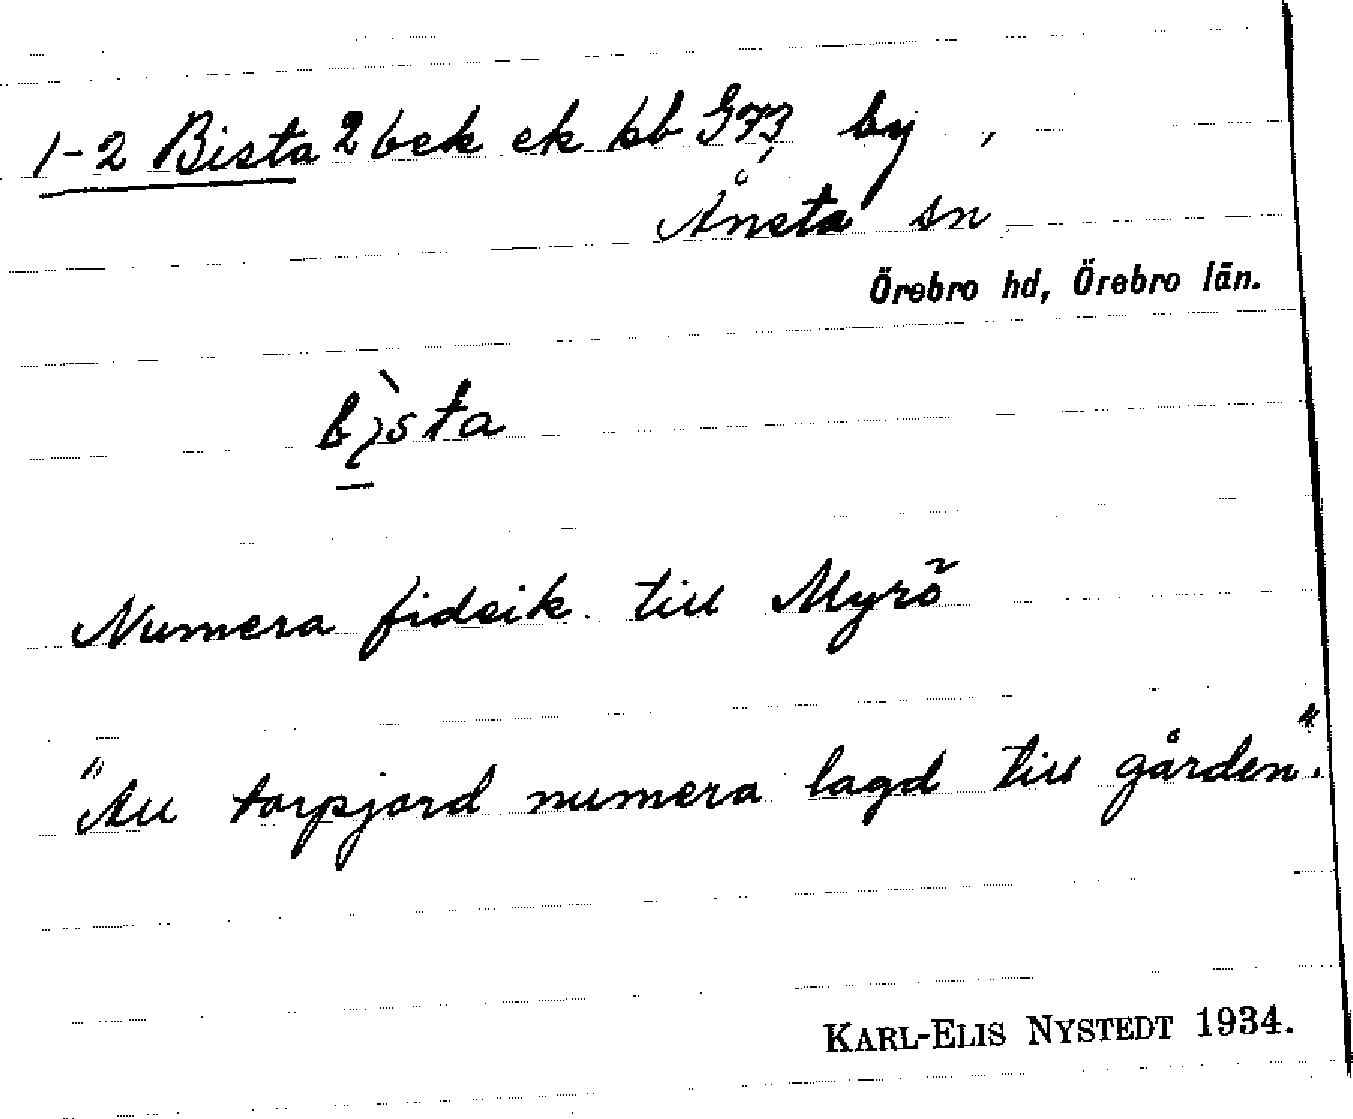 1-2 Bista 2 bek ek kb G73 by,
Ånsta sn
Örebro hd, Örebro län.
bìsta
Numera fideik. till Myrö
"All torpjord numera lagd till gården".
KARL-ELIS NYSTEDT 1934.